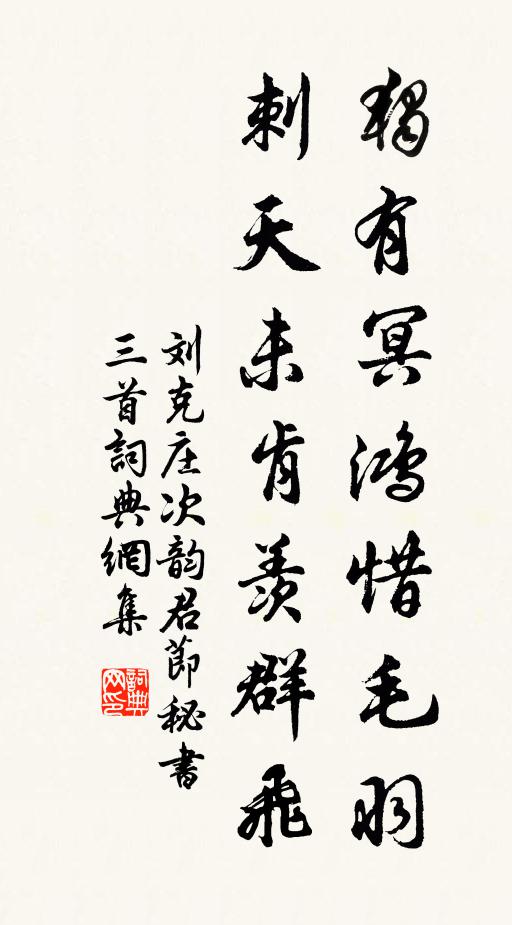 獨有冥鴻惜毛羽
刺天未肯羨群飛
刘克庄次韵君節秘書
三首詞典網集
詞典网印